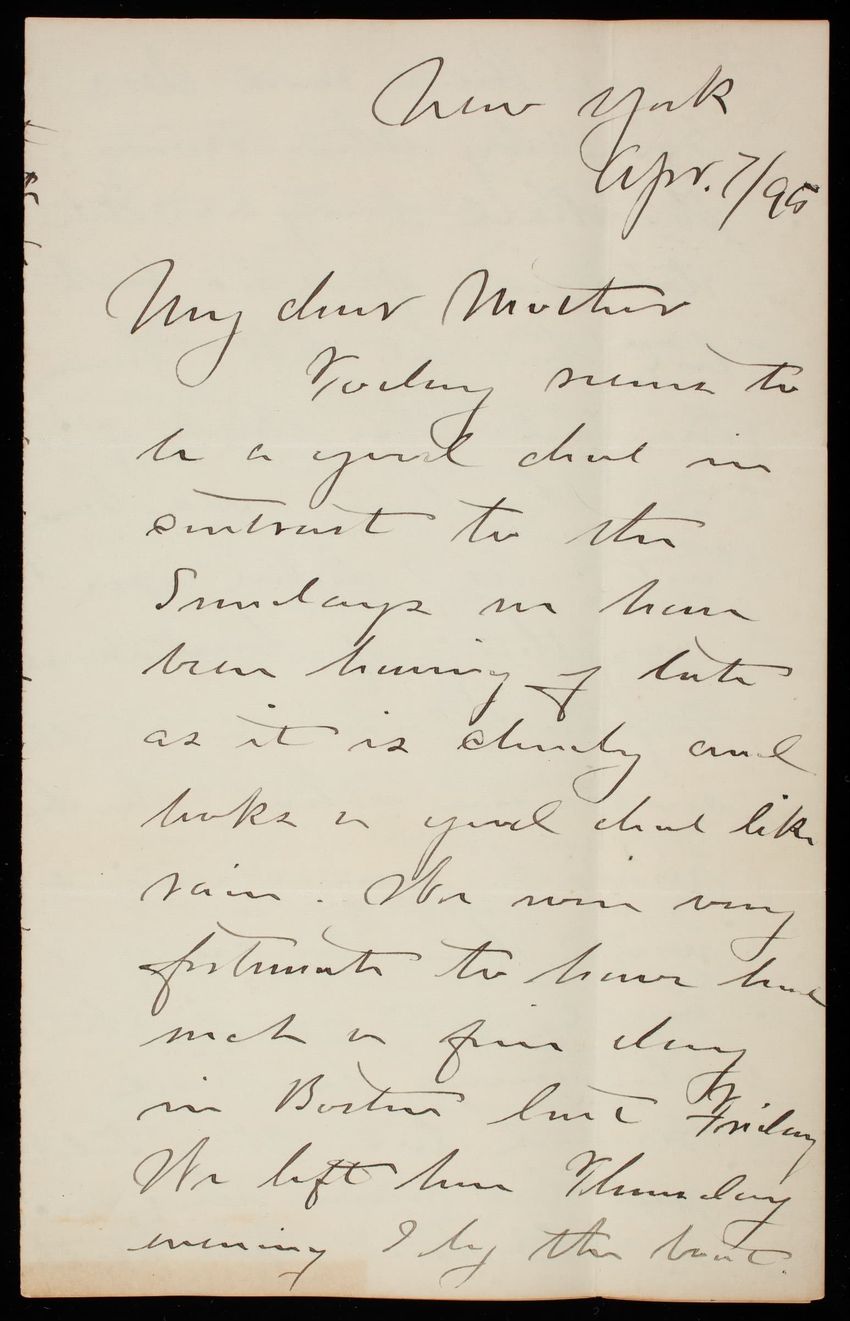 New York
Apr. 7/95
My dear Mother
Today seems to
be a good deal in
contrast to the
Sundays we have
been having of late
as it is cloudy and
looks a good deal like
rain. We were very
fortunate to have had
such a fine day
in Boston last Friday
We left here Thursday
evening I by the boat.